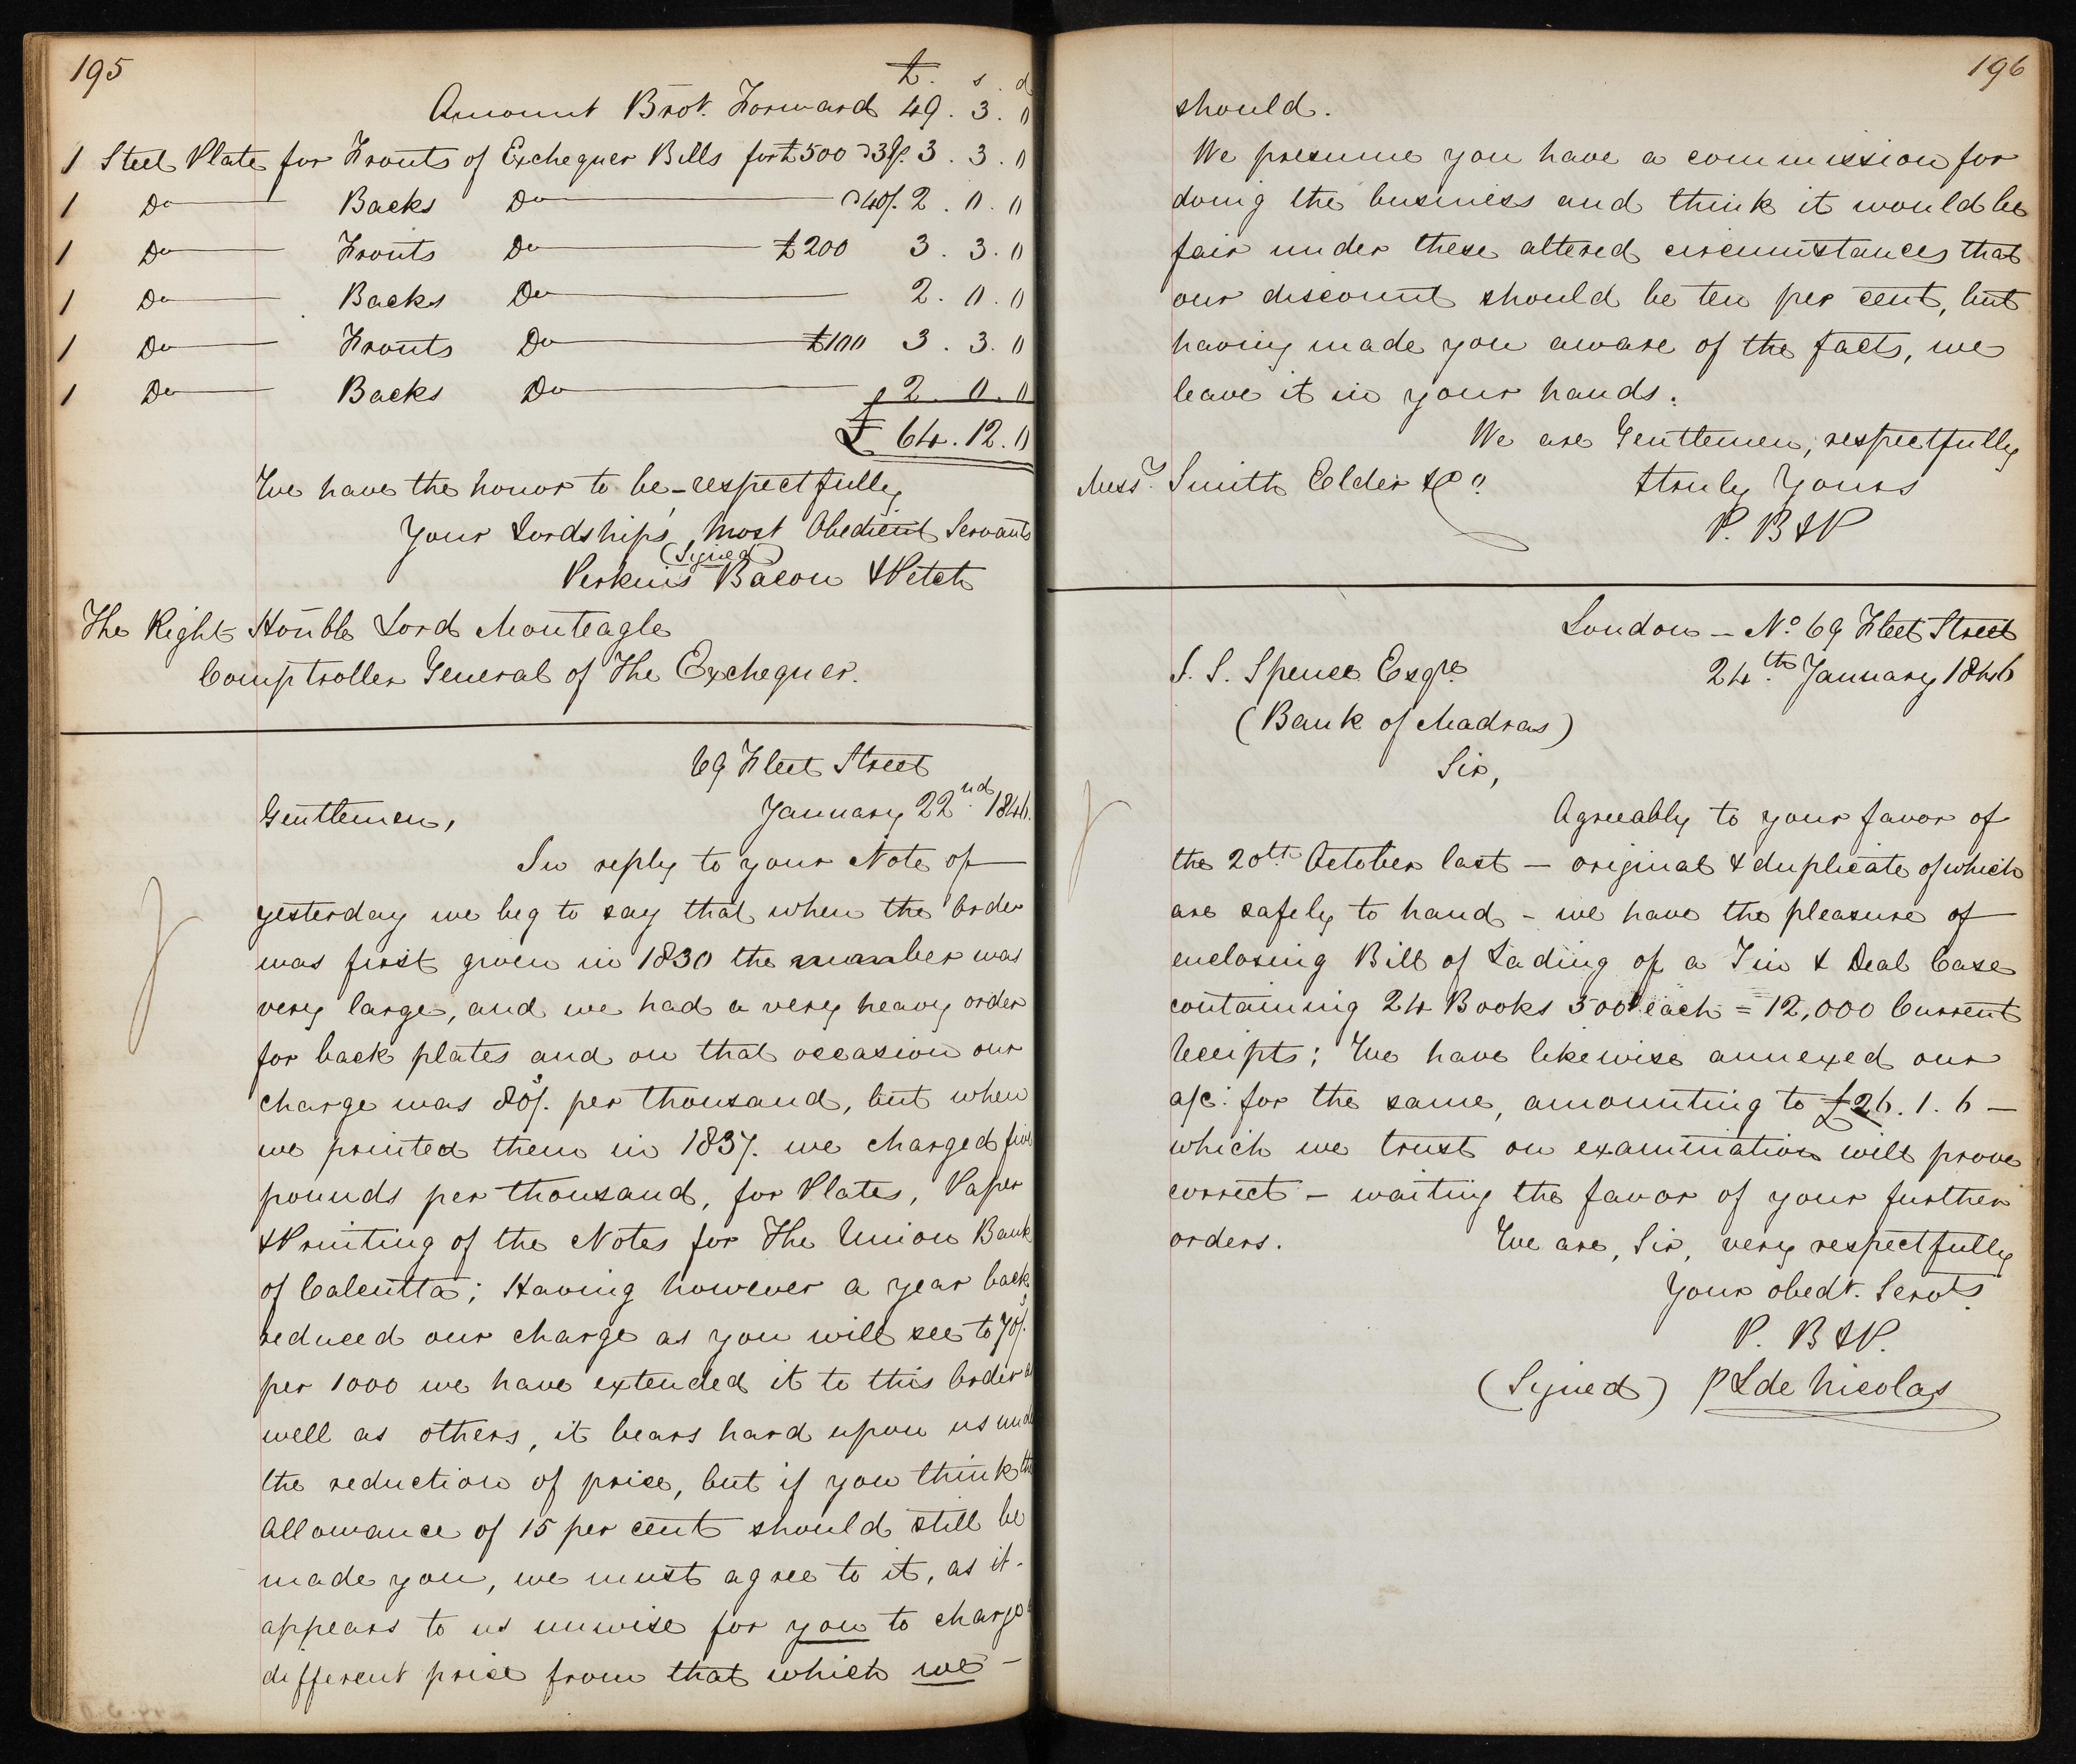 195
£. s. d
Amount Brot. Forward 49. 3. 0
1 Steel Plate for Fronts of Exchequer Bills for £500 3. 3. 0
1 Do Backs Do 40/. 2. 0. 0
1 Do Fronts Do £200 3. 3. 0
1 Do Backs Do 2. 0. 0
1 Do Fronts Do £100 3. 3. 0
1 Do Backs Do 2. 0. 0
£ 64. 12. 0
We have the honor to be - respectfully,
Your Lordship's Most Obedient Servants
(Signed)
Perkins Bacon & Petch
The Right Honble Lord Monteagle
Comptroller General of The Exchequer.
69 Fleet Street
Gentlemen, January 22nd. 1846.
In reply to your Note of
yesterday we beg to say that when the order
was first given in 1830 the number was
very large, and we had a very heavy order
for back plates and on that occasion our
charge was 80s/. per thousand, but when
we printed them in 1837. we charged five
pounds per thousand, for Plates, Paper
& Printing of the Notes for The Union Bank
of Calcutta; Having however a year back
reduced our charge as you will see to 70s/.
per 1000 we have extended it to this order as
well as others, it bears hard upon us
the reduction of price, but if you think
allowance of 15 per cent should still be
made you, we must agree to it, as it
appears to us unwise for you to charge
different price from that which we -
196
should.
We presume you have a commission for
doing the business and think it would be
fair under these altered circumstances that
our discount should be ten per cent, but
having made you aware of the facts, we
leave it in your hands.
We are Gentlemen, respectfully
Messrs. Smith Elder & Co. & truly Yours
P. B & P
London - No. 69 Fleet Street
S. S. Spence Esqre. 24th. January 1846
(Bank of Madras)
Sir,
Agreeably to your favor of
the 20th October last - original & duplicate of which
are safely to hand - we have the pleasure of
enclosing Bill of Lading of a Tin & Deal Case
containing 24 Books 500 each = 12,000 Current
Receipts; We have likewise annexed our
a/c: for the same, amounting to £26. 1. 6 -
which we trust on examination will prove
correct - waiting the favor of your further
orders. We are, Sir, very respectfully
Your obedt. Servts.
P. B & P.
(Signed) P L de Nicolas